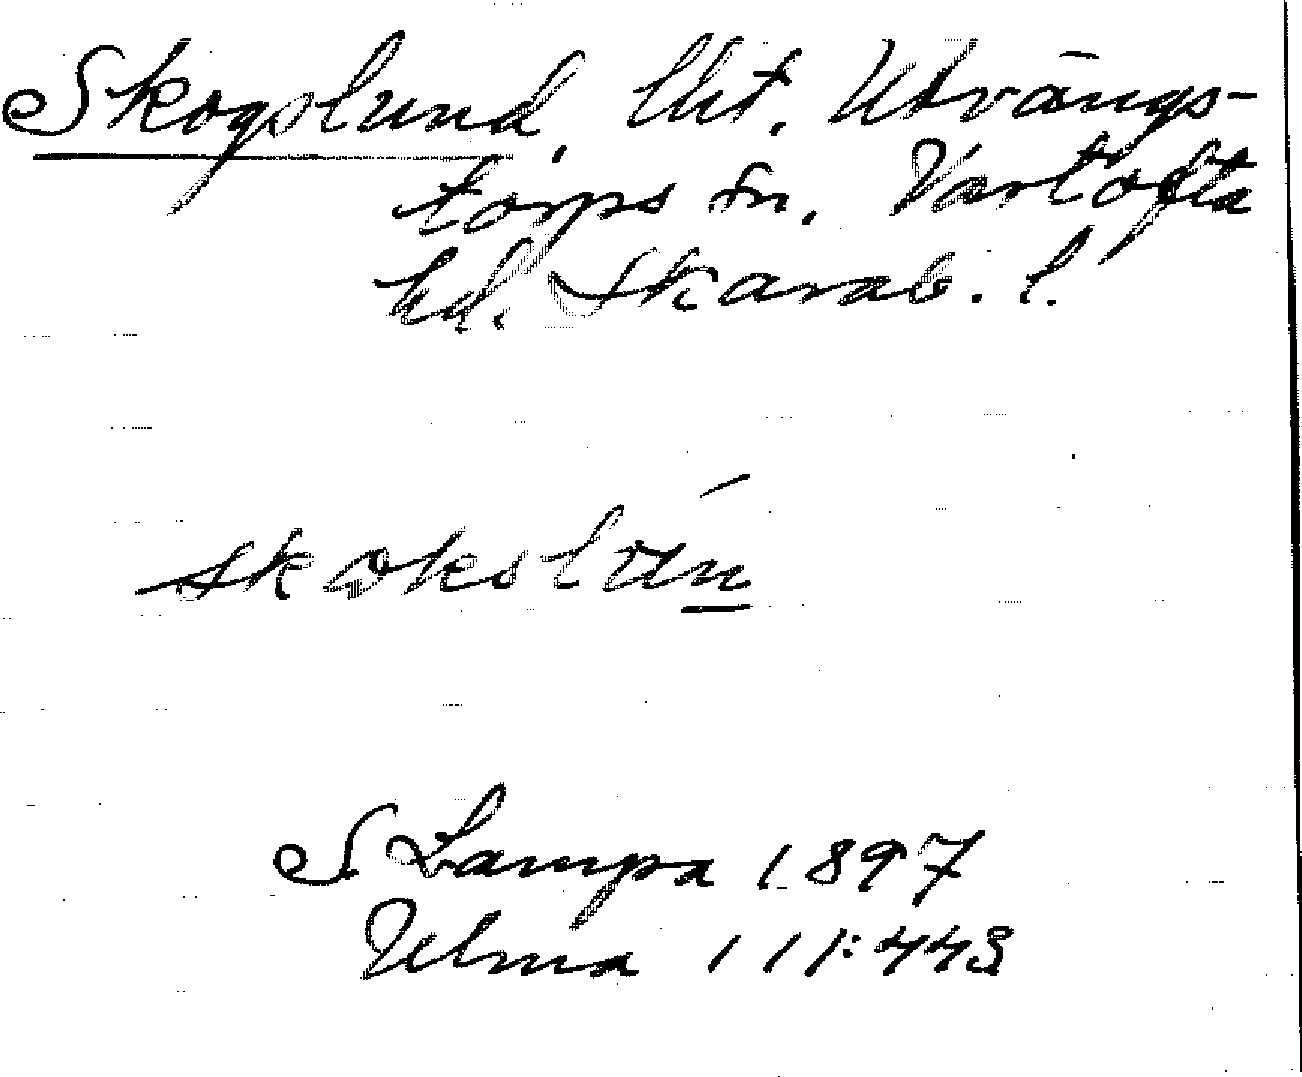 Skogslund, lht. Utvängs-
torps sn. Vartofta
hd. Skarab. l.
skokslún
S. Lampa 1897
Ulma 111:443